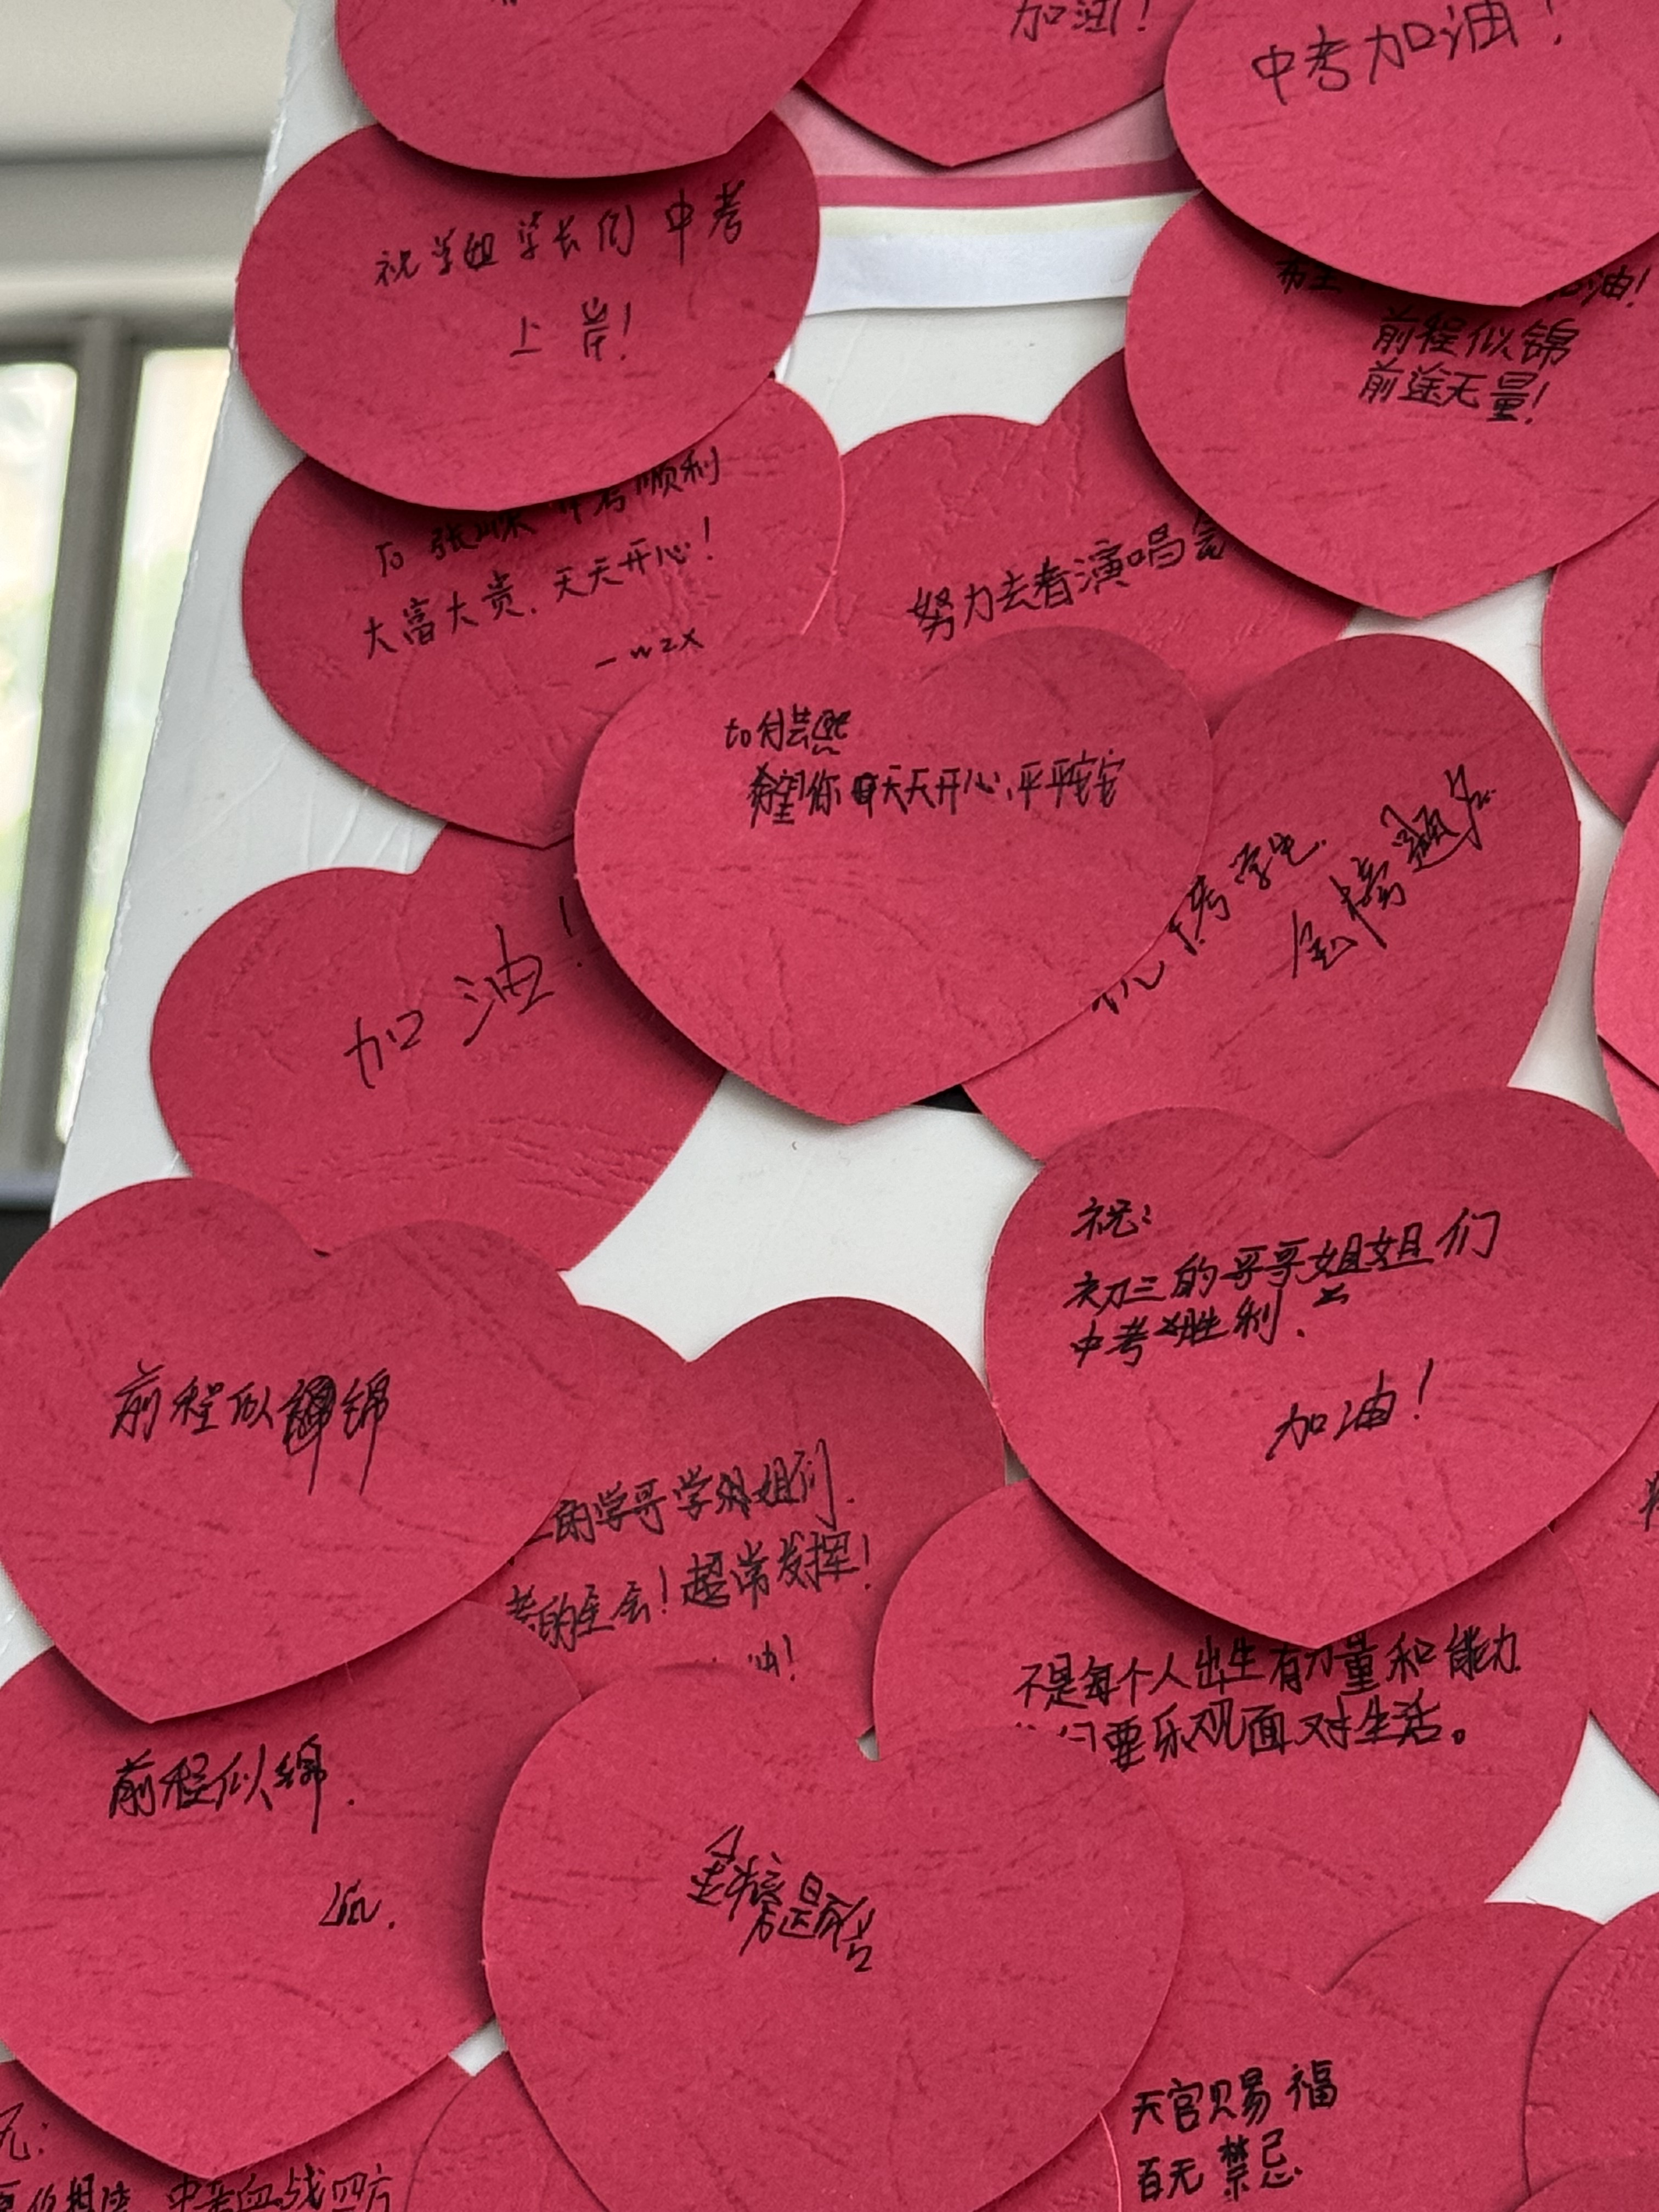 加油！
中考加油！
祝学姐学长们中考
上岸！
加油！
前程似锦
前途无量！
中考顺利
大富大贵，天天开心！
—wzx
努力去看演唱会
to付芸熙
希望你天天开心、平平安安
考学生.
金榜题名.
加油！
祝：
初三的哥哥姐姐们
中考胜利.
加油！
前程似锦
的学哥学姐们
考的全会！超常发挥！
油！
不是每个人出生有力量和能力
们要乐观面对生活。
前程似锦.
金榜题名
天官赐福
百无禁忌
中考血战四方